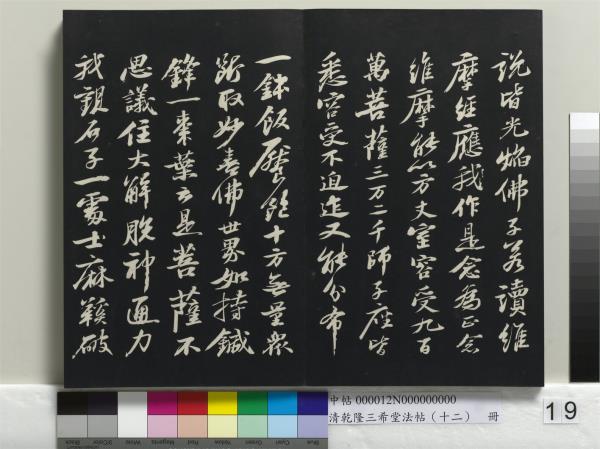 說皆光焰佛子若讀維
摩經應我作是念為正念
維摩能以方丈室容受九百
萬菩薩三万二千師子座皆
悉容受不迫迮又能分布
一鉢飯饜飽十方無量衆
斷取妙喜佛世界如持鍼
鋒一棗葉云是菩薩不
思議住大解脫神通力
我觀石子一處士麻鞵破
中帖 000012N000000000
清乾隆三希堂法帖（十二） 冊
19
Black
3/Color
White
Magenta
Red
Yellow
Green
Cyan
Blue